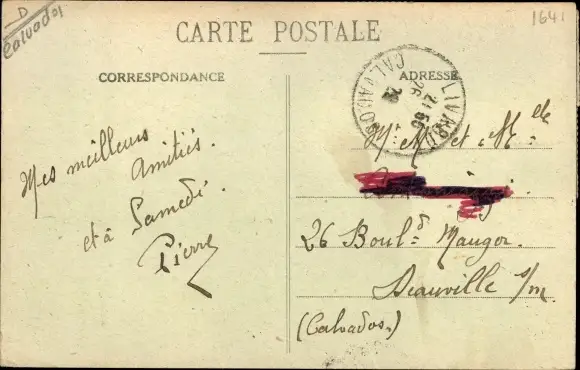 D
Calvados
1641
CARTE POSTALE
CORRESPONDANCE
ADRESSE
LIVAROT
CALVADOS
26
Mes meilleurs
Amitiés.
et à Samedi.
Pierre
Mr Me et Melle
26 Bould Mauger.
Deauville s/m
(Calvados.)